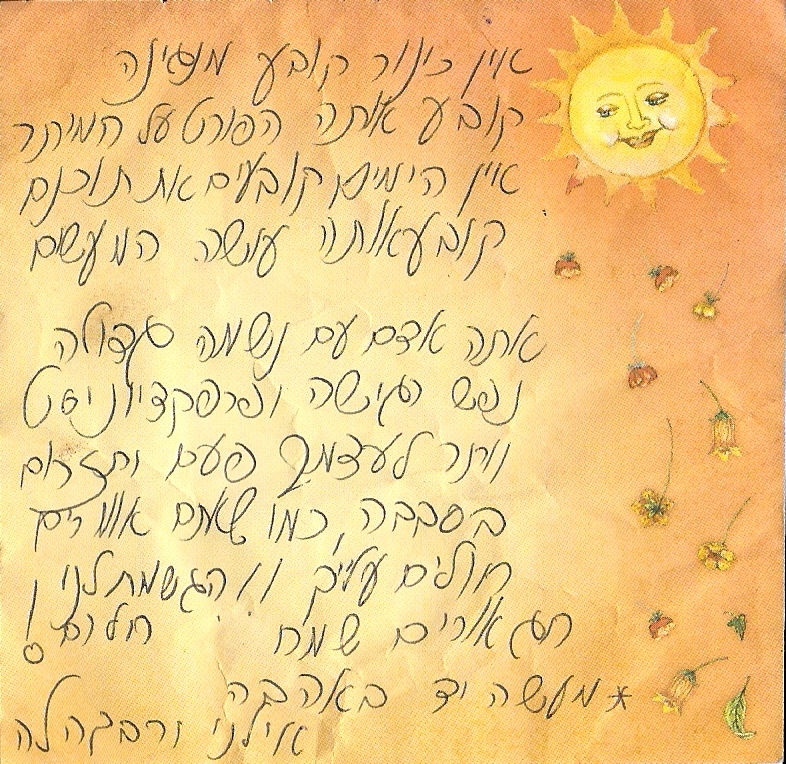 אין כינור קובע מנגינה
קובע אתה הפורט על המיתר
אין הימים קובעים את תוכנם
קובע אתה עושה המעשם
אתה אדם עם נשמה גדולה
נפש רגישה ופרפקציוניסט
וותר לעצמך פעם ותזרום
בסבבה, כמו שאתם אומרים
חולים עליך !! הגשמת לנו
חלום!
חג אורים שמח
* מעשה יד באהבה
אילני ורבקהלה